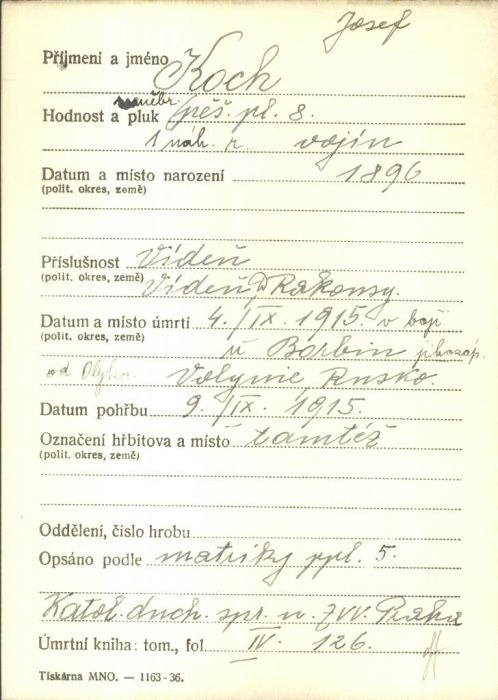 Josef
Příjmení a jméno Koch
Hodnost a pluk pěš. pl. 8.
1 náh. r. vojín
Datum a místo narození 1896
(polit. okres, země)
Příslušnost Vídeň
(polit. okres, země) Vídeň, D Rakousy.
Datum a místo úmrtí 4./IX. 1915. v boji
(polit. okres, země) u Borbin jihozáp.
od Olyka. Volynie Rusko.
Datum pohřbu 9./IX. 1915.
Označení hřbitova a místo tamtéž
(polit. okres, země)
Oddělení, číslo hrobu
Opsáno podle matriky ppl. 5.
Katol. duch. spr. u ZVV. Praha
Úmrtní kniha: tom., fol. IV. 126.
Tiskárna MNO. — 1163-36.